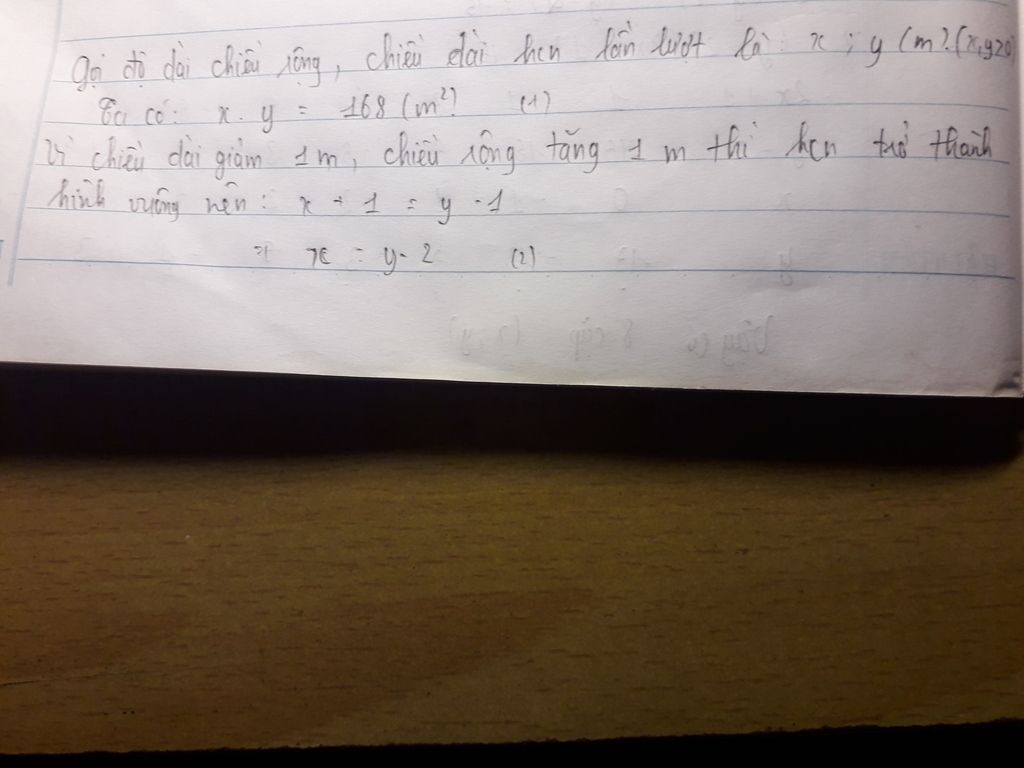 Gọi độ dài chiều rộng, chiều dài hcn lần lượt là : x ; y (m). (x,y>0)
Ta có: x . y = 168 (m²) (1)
Vì chiều dài giảm 1m, chiều rộng tăng 1 m thì hcn trở thành
hình vuông nên : x + 1 = y - 1
=> x = y - 2 (2)